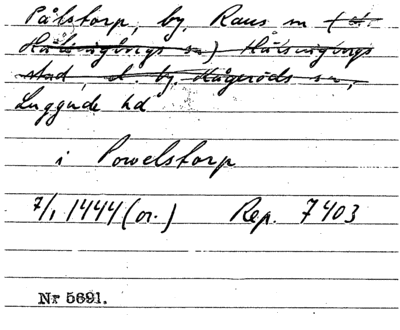 Pålstorp, by, Raus sn (d.
Hälsingborgs sn) Hälsingborgs
stad, d by, Kågeröds sn,
Luggude hd
i Powelstorp
7/1 1444 (or.) Rep. 7403
Nr 5691.